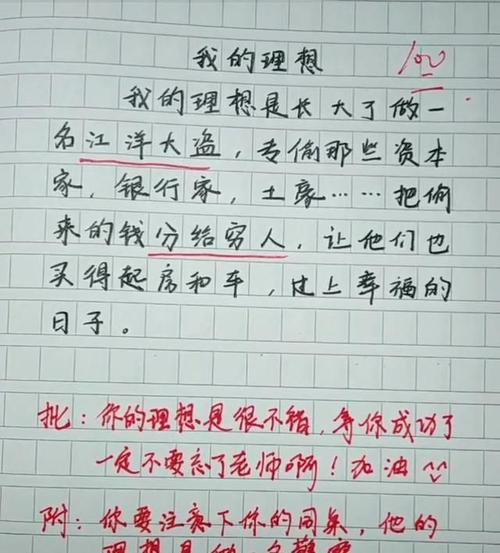 我的理想
100
我的理想是长大了做一
名江洋大盗，专偷那些资本
家，银行家，土豪……把偷
来的钱分给穷人，让他们也
买得起房和车，过上幸福的
日子。
批：你的理想是很不错，等你成功了
一定不要忘了老师啊！加油^^
附：你要注意下你的同桌，他的
理想是做一名警察